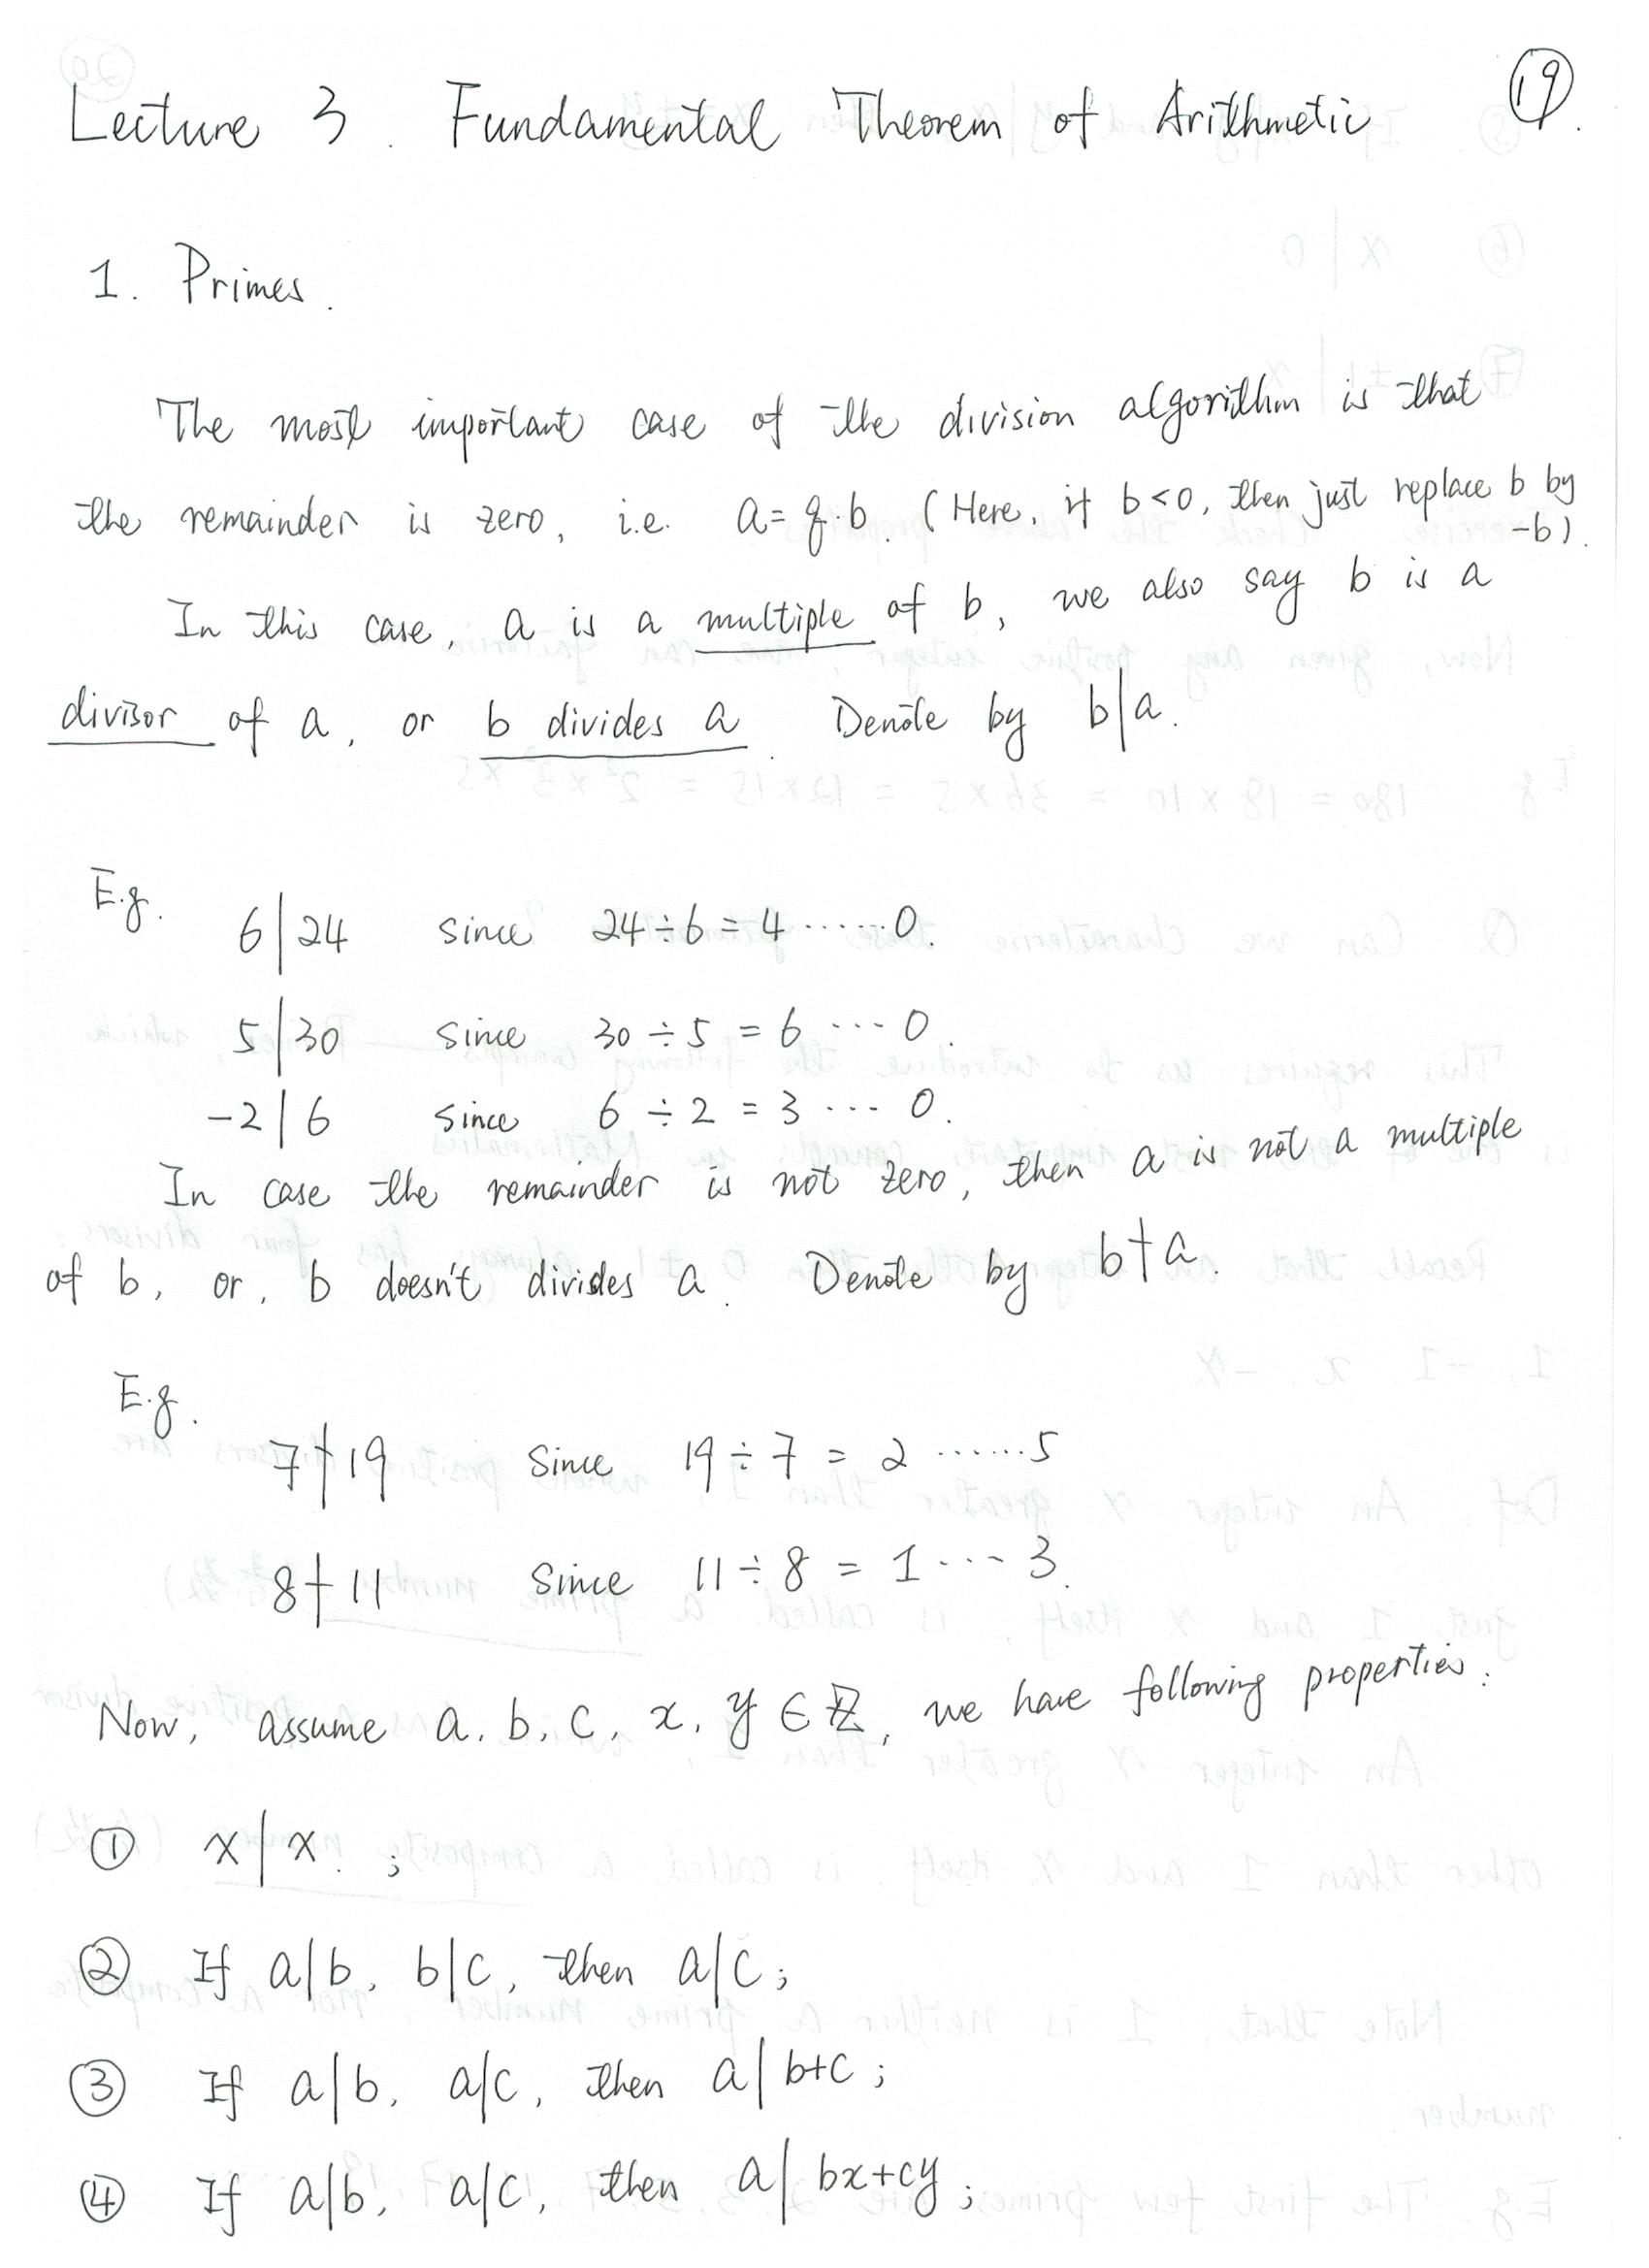 Lecture 3. Fundamental Theorem of Arithmetic
19.
1. Primes.
The most important case of the division algorithm is that
the remainder is zero, i.e. a=q·b. (Here, if b<0, then just replace b by
-b).
In this case, a is a multiple of b, we also say b is a
divisor of a, or b divides a. Denote by b|a.
E.g.
6|24 since 24÷6=4 ······0.
5|30 since 30÷5=6 ···0.
-2|6 since 6÷2=3 ··· 0.
In case the remainder is not zero, then a is not a multiple
of b, or, b doesn't divides a. Denote by b∤a.
E.g.
7∤19 since 19÷7=2 ······5
8∤11 since 11÷8=1 ··· 3.
Now, assume a, b, c, x, y ∈ ℤ, we have following properties:
① x|x. ;
② If a|b, b|c, then a|c;
③ If a|b, a|c, then a|b+c;
④ If a|b, a|c, then a|bx+cy;